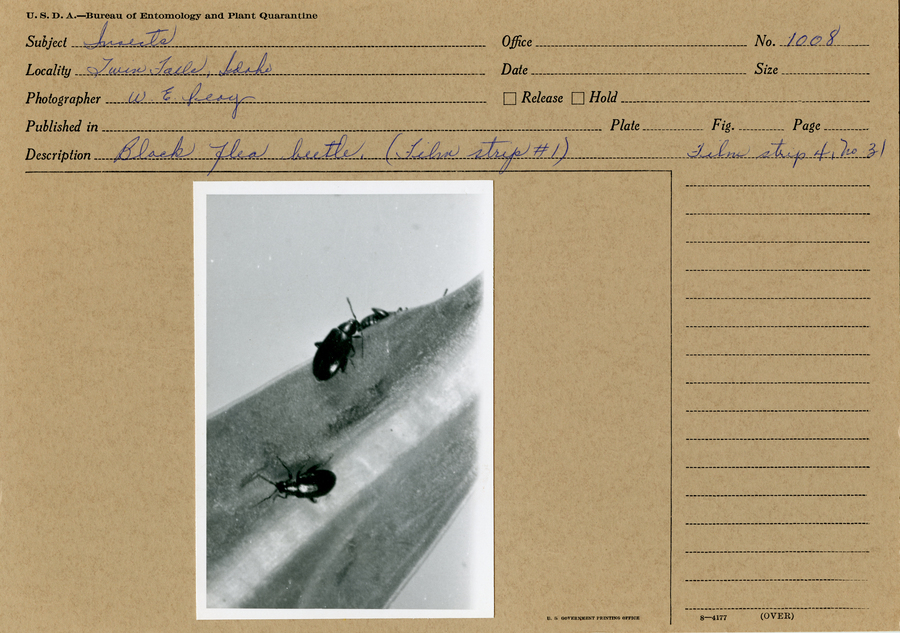 U. S. D. A.—Bureau of Entomology and Plant Quarantine
Subject Insects Office No. 1008
Locality Twin Falls, Idaho Date Size
Photographer W. E. Peay Release Hold
Published in Plate Fig. Page
Description Black flea beetle. (Film strip #1) Film strip 4, no 31
U. S. GOVERNMENT PRINTING OFFICE 8—4177 (OVER)